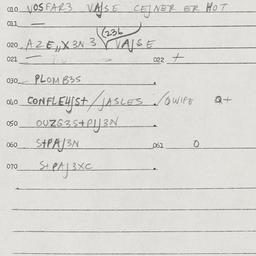 010 VOSFAR3 VAJSE CEJNER ER HOT
011 —
(236
020 AZE,,X3N3 VAJSE
021 — 022 +
030 PLOMB3S
040 CONFLEUJS+/JASLES/QWIPE Q+
050 OUZG3S+PIJ3N
060 S+PAJ3N 061 O
070 S+PAJ3XC